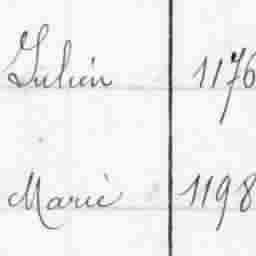 Julien 1176
Marie 1198